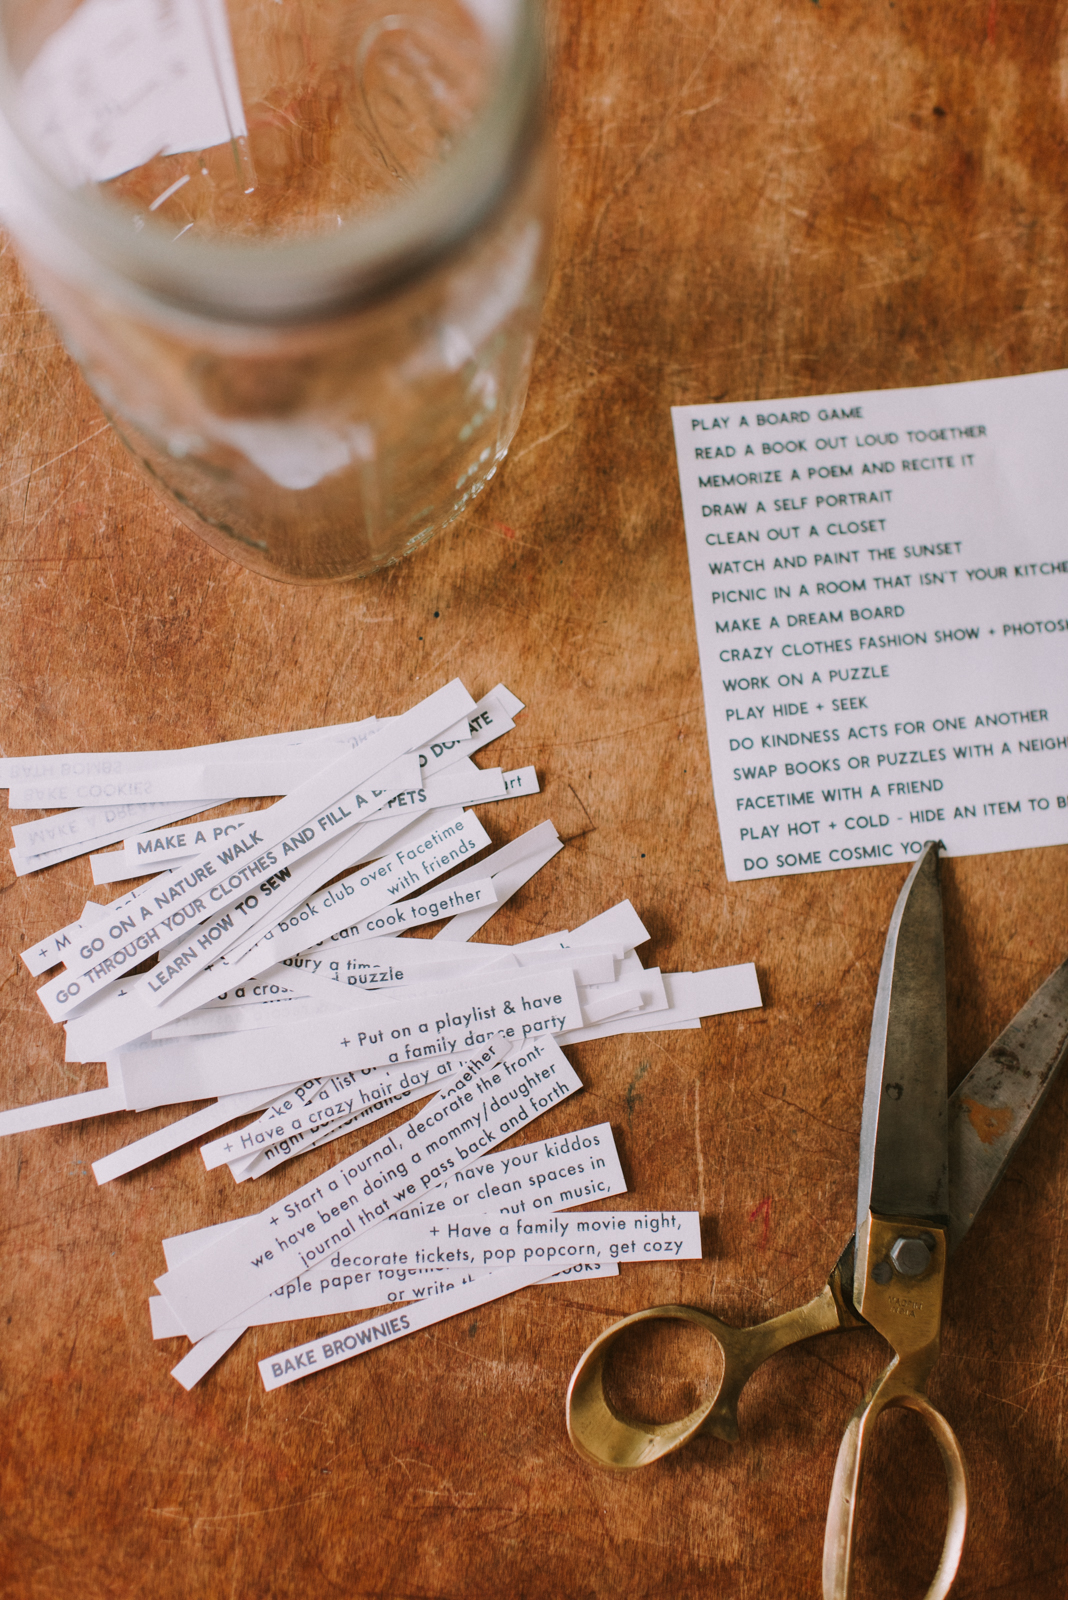 PLAY A BOARD GAME
READ A BOOK OUT LOUD TOGETHER
MEMORIZE A POEM AND RECITE IT
DRAW A SELF PORTRAIT
CLEAN OUT A CLOSET
WATCH AND PAINT THE SUNSET
PICNIC IN A ROOM THAT ISN'T YOUR KITCHE
MAKE A DREAM BOARD
CRAZY CLOTHES FASHION SHOW + PHOTOS
WORK ON A PUZZLE
PLAY HIDE + SEEK
DO KINDNESS ACTS FOR ONE ANOTHER
SWAP BOOKS OR PUZZLES WITH A NEIGH
FACETIME WITH A FRIEND
PLAY HOT + COLD - HIDE AN ITEM TO B
DO SOME COSMIC YOGA
BATH BOMBS
BAKE COOKIES
MAKE A DREA
MAKE A PO
+ M
GO ON A NATURE WALK
GO THROUGH YOUR CLOTHES AND FILL A B
O DONATE
PETS
LEARN HOW TO SEW
book club over Facetime
with friends
can cook together
bury a time
a cros
puzzle
+ Put on a playlist & have
a family dance party
a list of
+ Have a crazy hair day at
night performance
together
+ Start a journal, decorate the front-
we have been doing a mommy/daughter
journal that we pass back and forth
have your kiddos
anize or clean spaces in
put on music,
+ Have a family movie night,
decorate tickets, pop popcorn, get cozy
aple paper together
or write th
books
BAKE BROWNIES